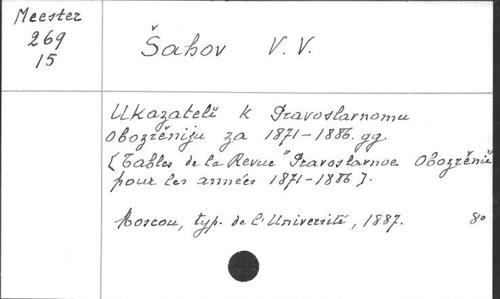 Meester
269
15
Šahov V. V.
Ukazatelĭ k Pravoslavnomu
obozrĕniju za 1871-1886. gg.
[Tables de la Revue "Pravoslavnoe Obozrĕnie
pour les années 1871-1886].
Moscou, typ. de l'Université, 1887. 8o